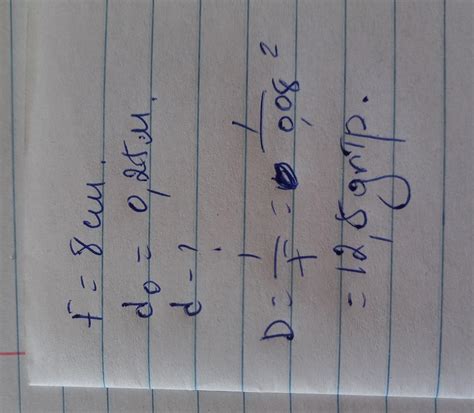 F = 8 см.
d₀ = 0,25 м.
d - ?
D = 1/F = 1/0,08 =
= 12,5 дптр.